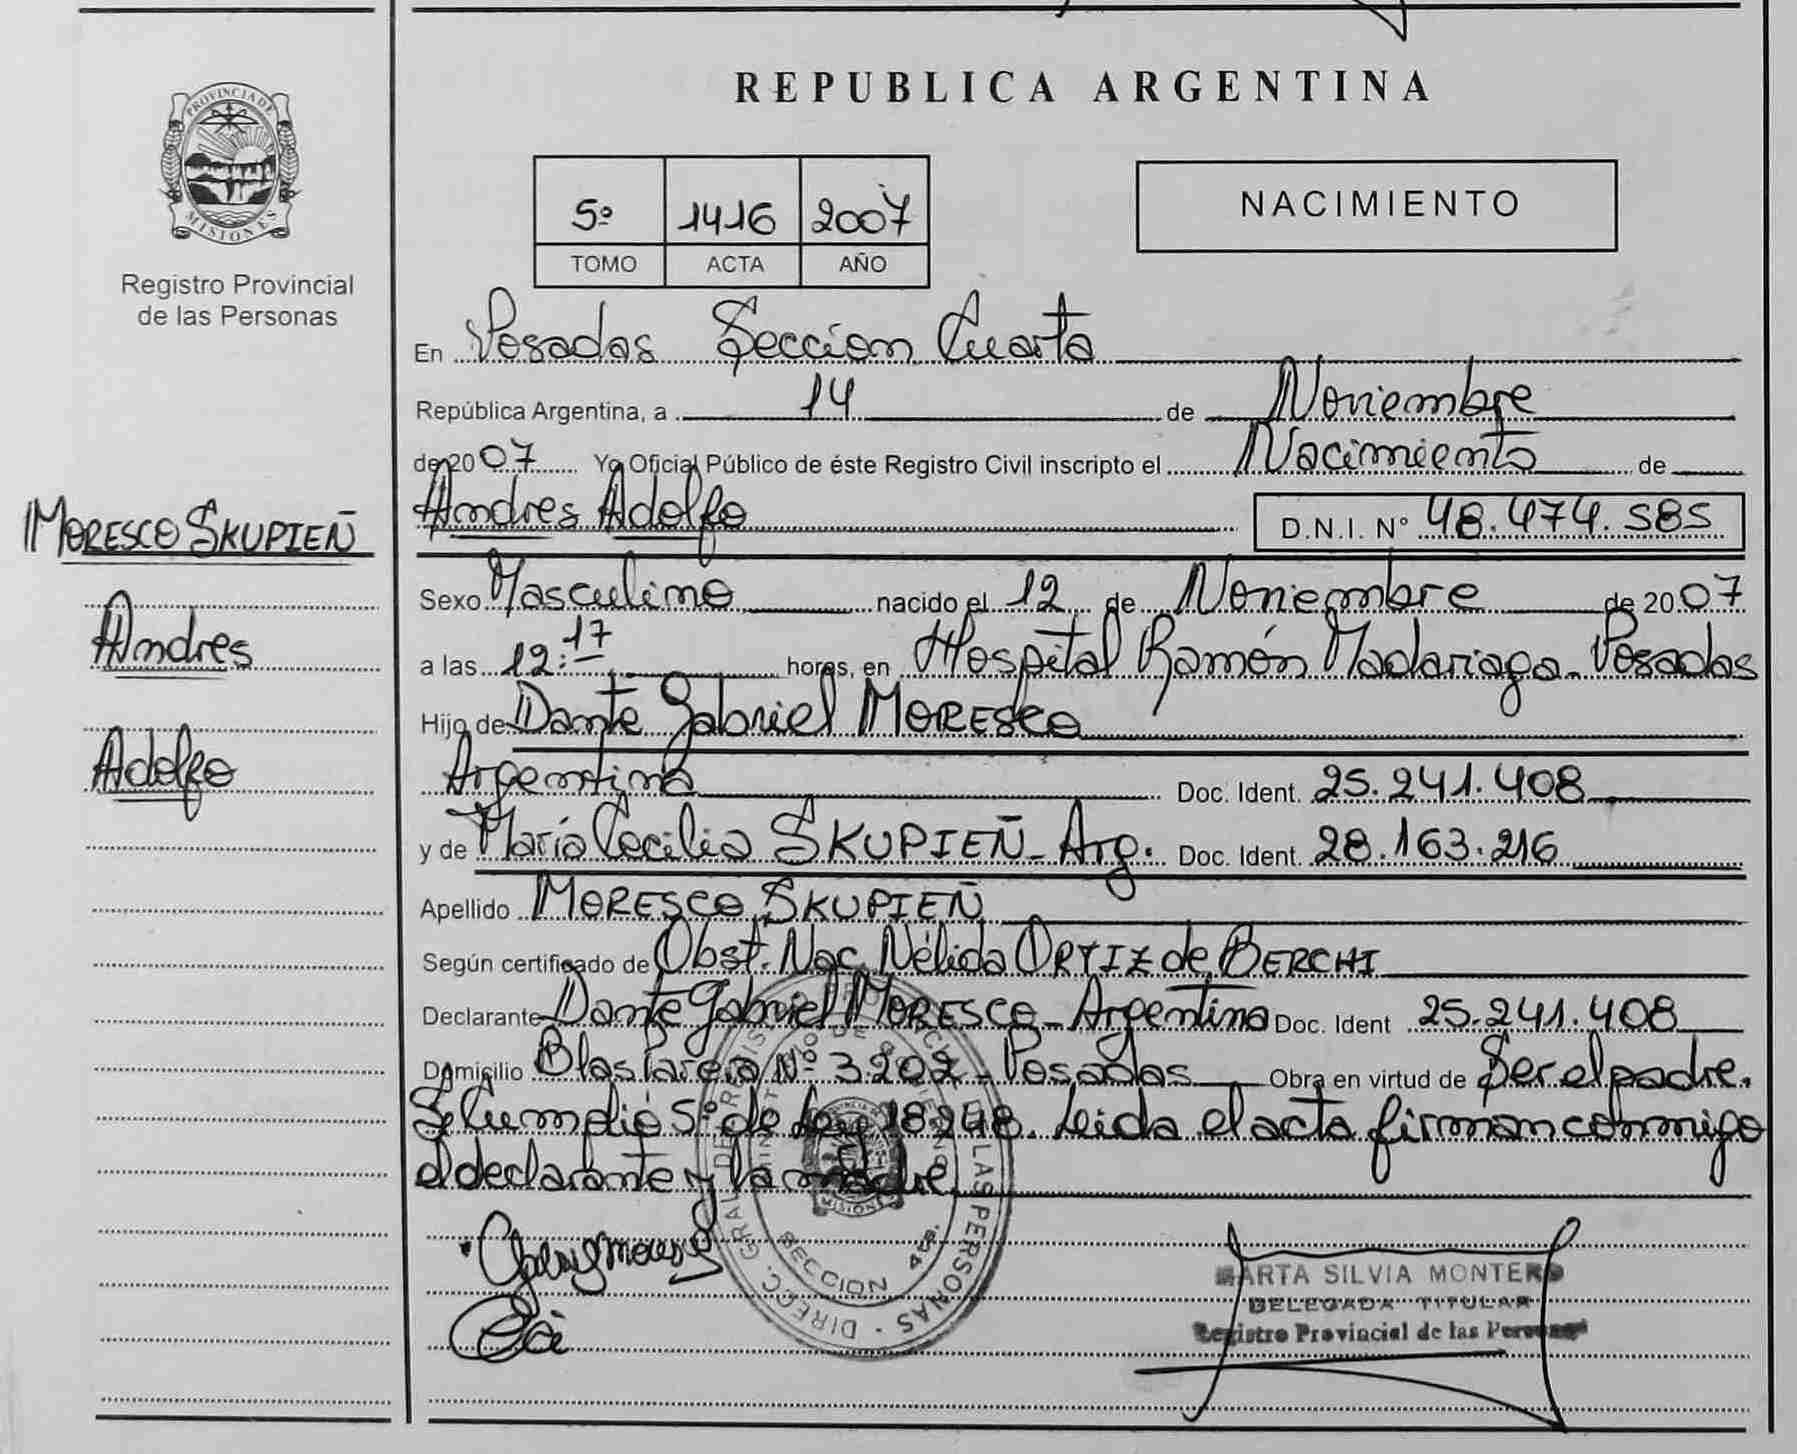 PROVINCIA DE
MISIONES
Registro Provincial
de las Personas
MORESCO SKUPIEÑ
Andres
Adolfo
REPUBLICA ARGENTINA
5º 1416 2007
TOMO ACTA AÑO
NACIMIENTO
En Posadas Seccion Cuarta
República Argentina, a 14 de Noviembre
de 2007 Yo Oficial Público de éste Registro Civil inscripto el Nacimiento de
Andres Adolfo D.N.I. Nº 48.474.585
Sexo Masculino nacido el 12 de Noviembre de 2007
a las 12:17 horas, en Hospital Ramón Madariaga - Posadas
Hijo de Dante Gabriel MORESCO
Argentina Doc. Ident. 25.241.408
y de María Cecilia SKUPIEÑ - Arg. Doc. Ident. 28.163.216
Apellido MORESCO SKUPIEÑ
Según certificado de Obst. Nac. Nélida ORTIZ de BERCHI
Declarante Dante Gabriel MORESCO - Argentina Doc. Ident 25.241.408
Domicilio Blas Parera Nº 3.202 - Posadas Obra en virtud de Ser el padre.
Se Cumplió 5º de Ley 18248. Leida el acta firman conmigo
el declarante y la madre
DIRECC. GRAL DE REGIS PROVINC LAS PERSONAS
SECCION 4ta.
MISIONES
MARTA SILVIA MONTERO
DELEGADA TITULAR
Registro Provincial de las Personas